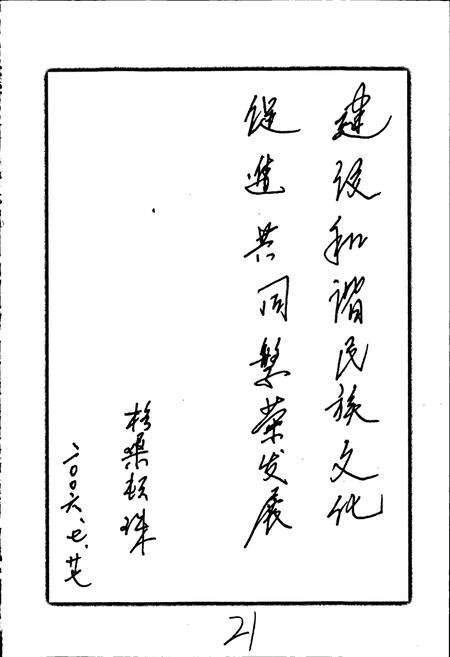 建设和谐民族文化
促进共同繁荣发展
格桑顿珠
二〇〇六、七、廿七
21